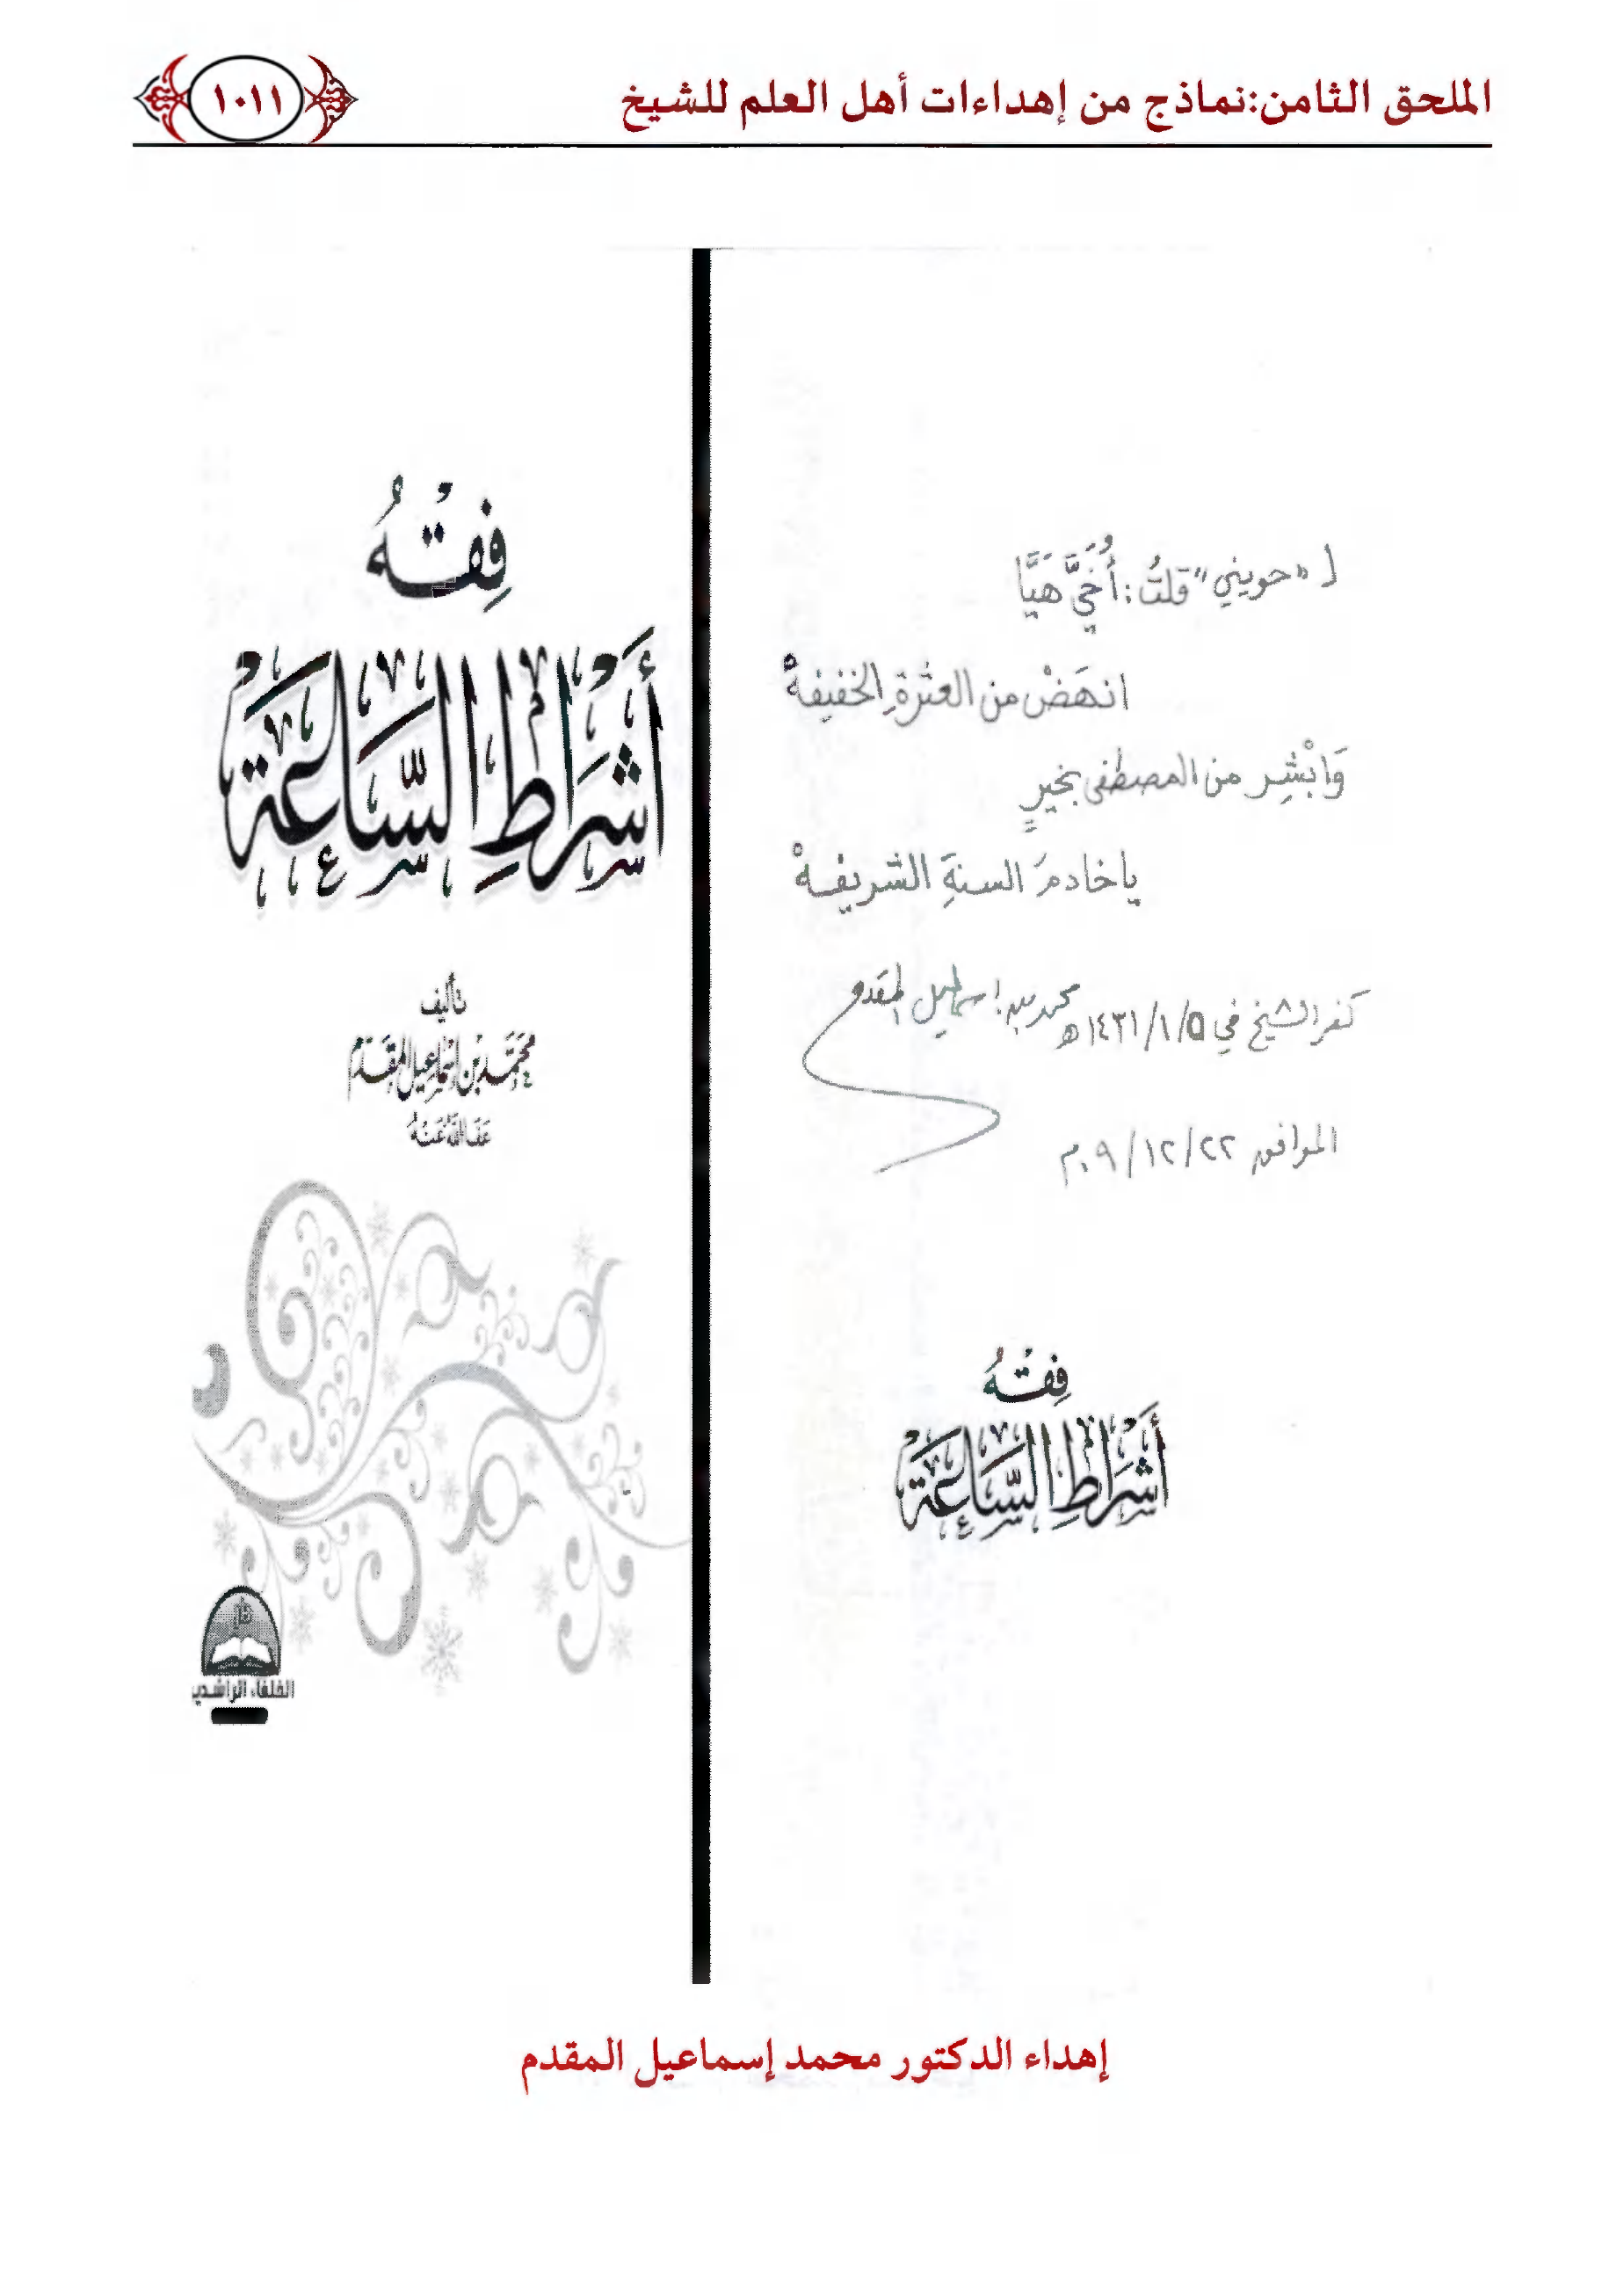 الملحق الثامن:نماذج من إهداءات أهل العلم للشيخ
١٠١١
لـ "حويني" قلتُ: أُخَيَّ هَيَّا
انهَضْ من العثرةِ الخفيفهْ
وَابْشِر من المصطفى بخيرٍ
يا خادمَ السنةِ الشريفهْ
محمد بن إسماعيل المقدم
كفر الشيخ في ١٤٣١/١/٥ هـ
الموافق ٢٢/١٢/٠٩ م
فِقْهُ
أَشْرَاطِ السَّاعَةِ
فِقْهُ
أَشْرَاطِ السَّاعَةِ
تأليف
مُحَمَّد بْن إِسْمَاعِيل المُقَدَّم
عَفَا اللهُ عَنْهُ
دار
الخلفاء الراشدين
إهداء الدكتور محمد إسماعيل المقدم